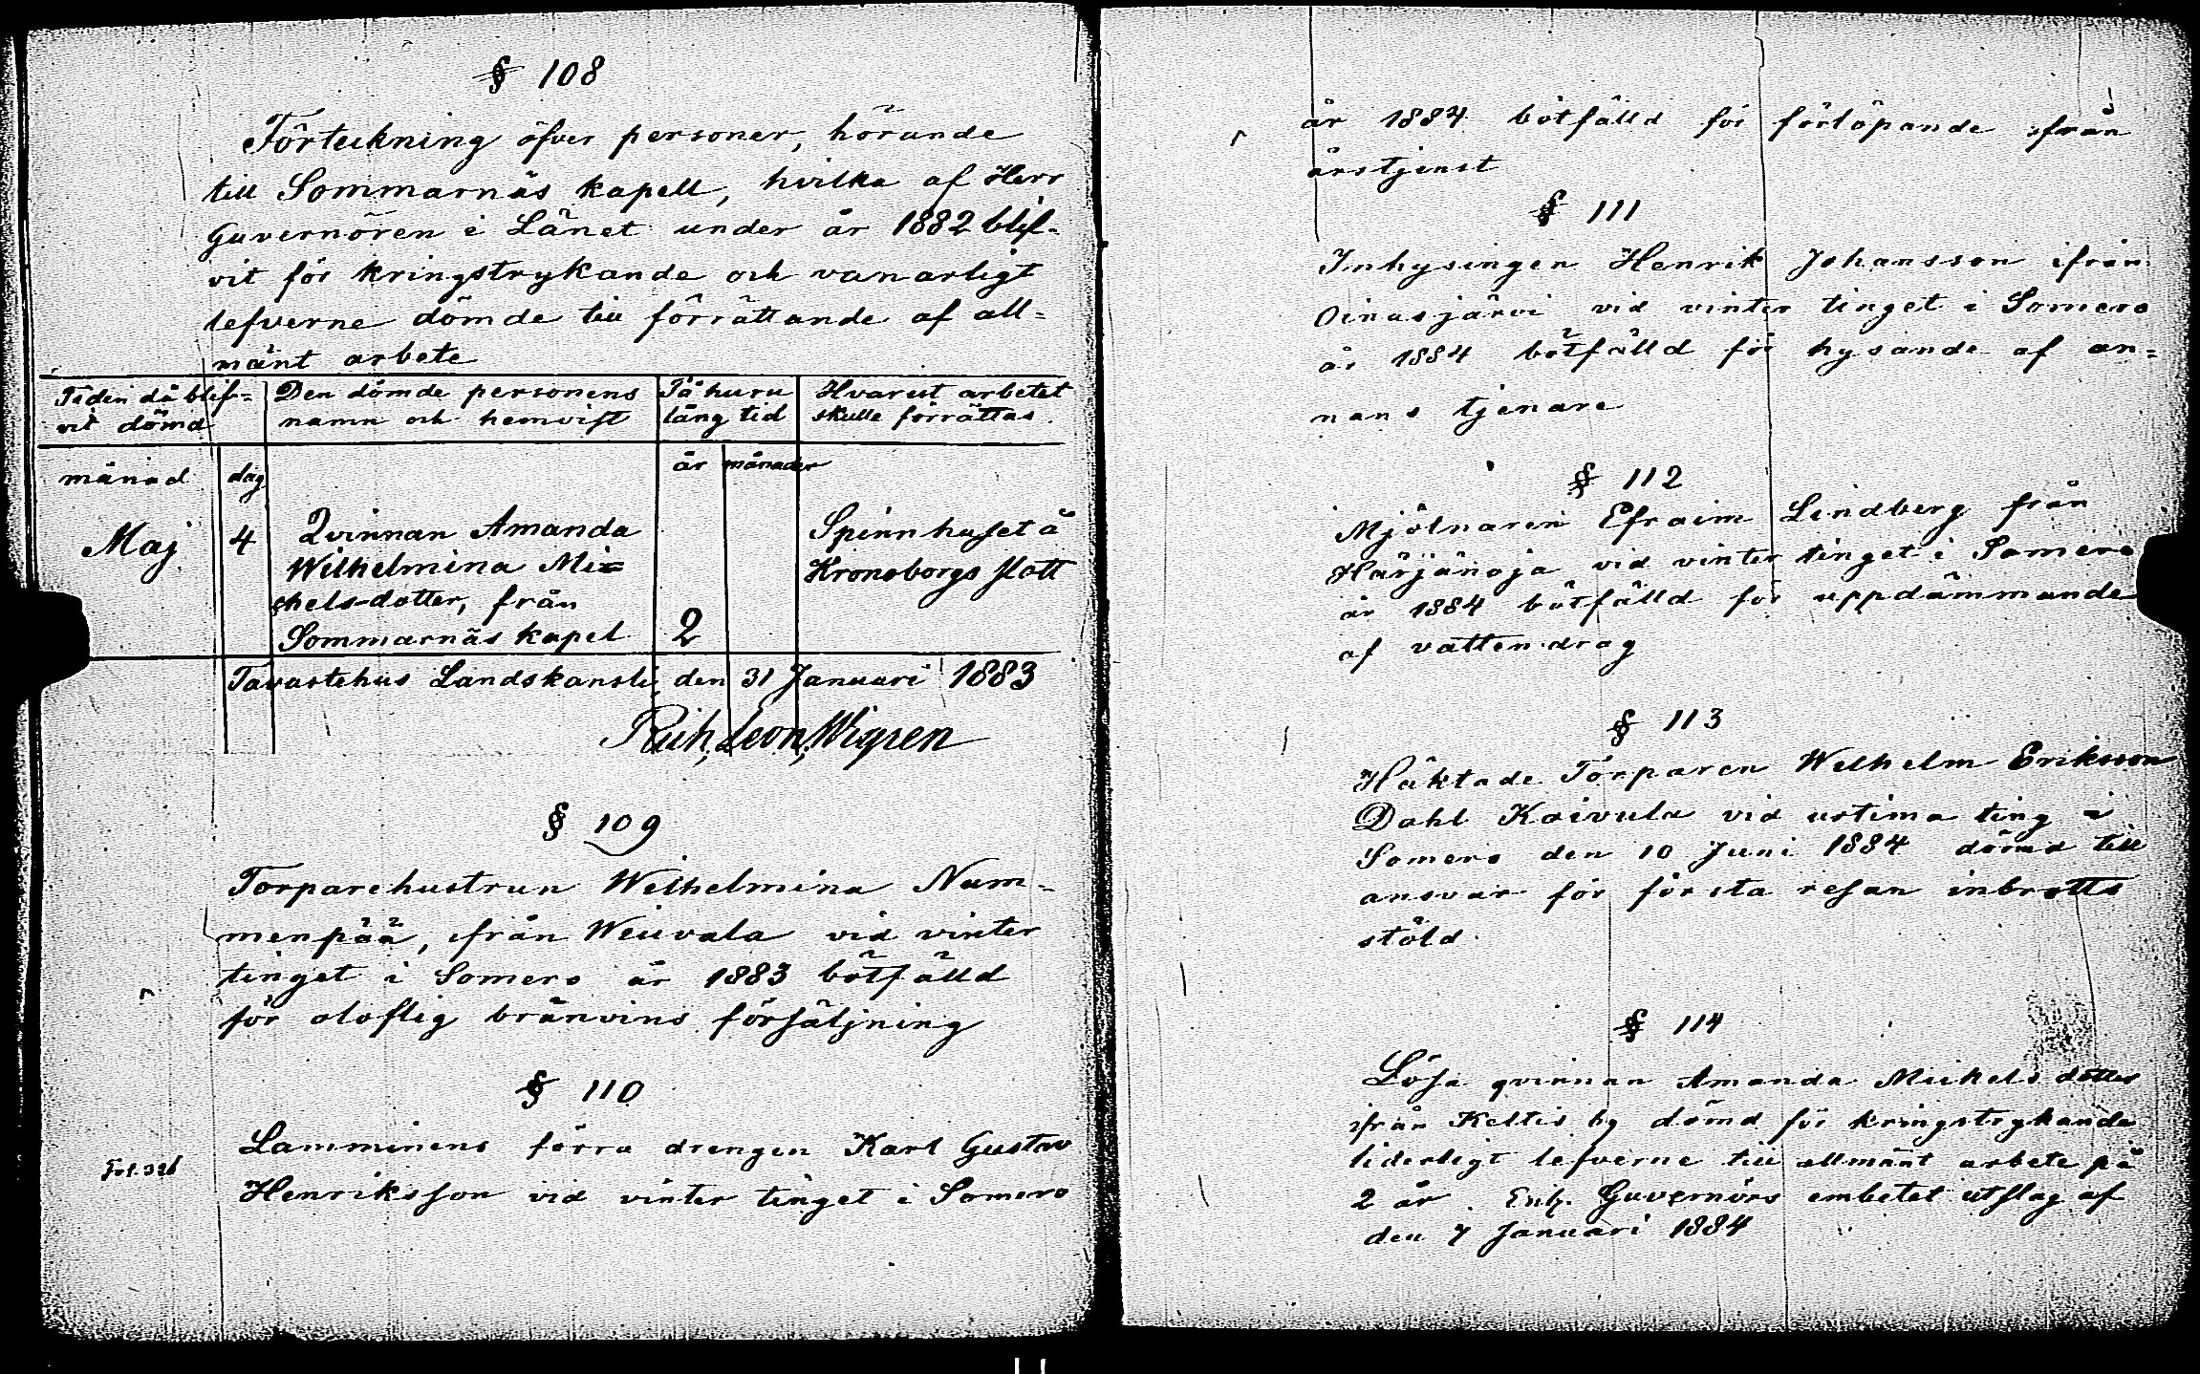 § 108
Förteckning öfver personer, hörande
till Sommarnäs kapell, hvilka af Herr
Guvernören i Länet under år 1882 blif-
vit för kringstrykande och vanartigt
lefverne dömde till förrättande af all=
mänt arbete
Tiden då blif= Den dömde personens På huru Hvarest arbetet
vit dömd namn och hemvist lång tid skulle förrättas.
månad dag år månader
Maj 4 Qvinnan Amanda Spinnhuset å
Wilhelmina Mi= Kronoborgs slott
chels-dotter, från
Sommarnäs kapel 2
Tavastehus Landskansli, den 31 Januari 1883
Rich, Leon, Wigren
§ 109
Torparehustrun Wilhelmina Num-
menpää, ifrån Weuvala vid vinter
tinget i Somero år 1883 bötfälld
för oloflig bränvins försäljning
§ 110
Lamminens förra drengen Karl Gustav
Fol. 326
Henriksson vid vinter tinget i Somero
år 1884 bötfälld för förlöpande ifrån
årstjenst
§ 111
Inhysingen Henrik Johansson ifrån
Oinasjärvi vid vinter tinget i Somero
år 1884 bötfälld för hysande af an=
nans tjenare
§ 112
Mjölnaren Efraim Lindberg från
Härjänoja vid vinter tinget i Somero
år 1884 bötfälld för uppdämmande
af vatten drag
§ 113
Häktade Torparen Wilhelm Eriksson
Dahl Koivula vid urtima ting i
Somero den 10 Juni 1884 dömd till
ansvar för första resan inbrotts
stöld
§ 114
Lösa qvinnan Amanda Mickels dotter
ifrån Keltis by dömd för kringstrykande
liderligt lefverne till allmänt arbete på
2 år. Enl. Guvernörs embetet utslag af
den 7 Januari 1884